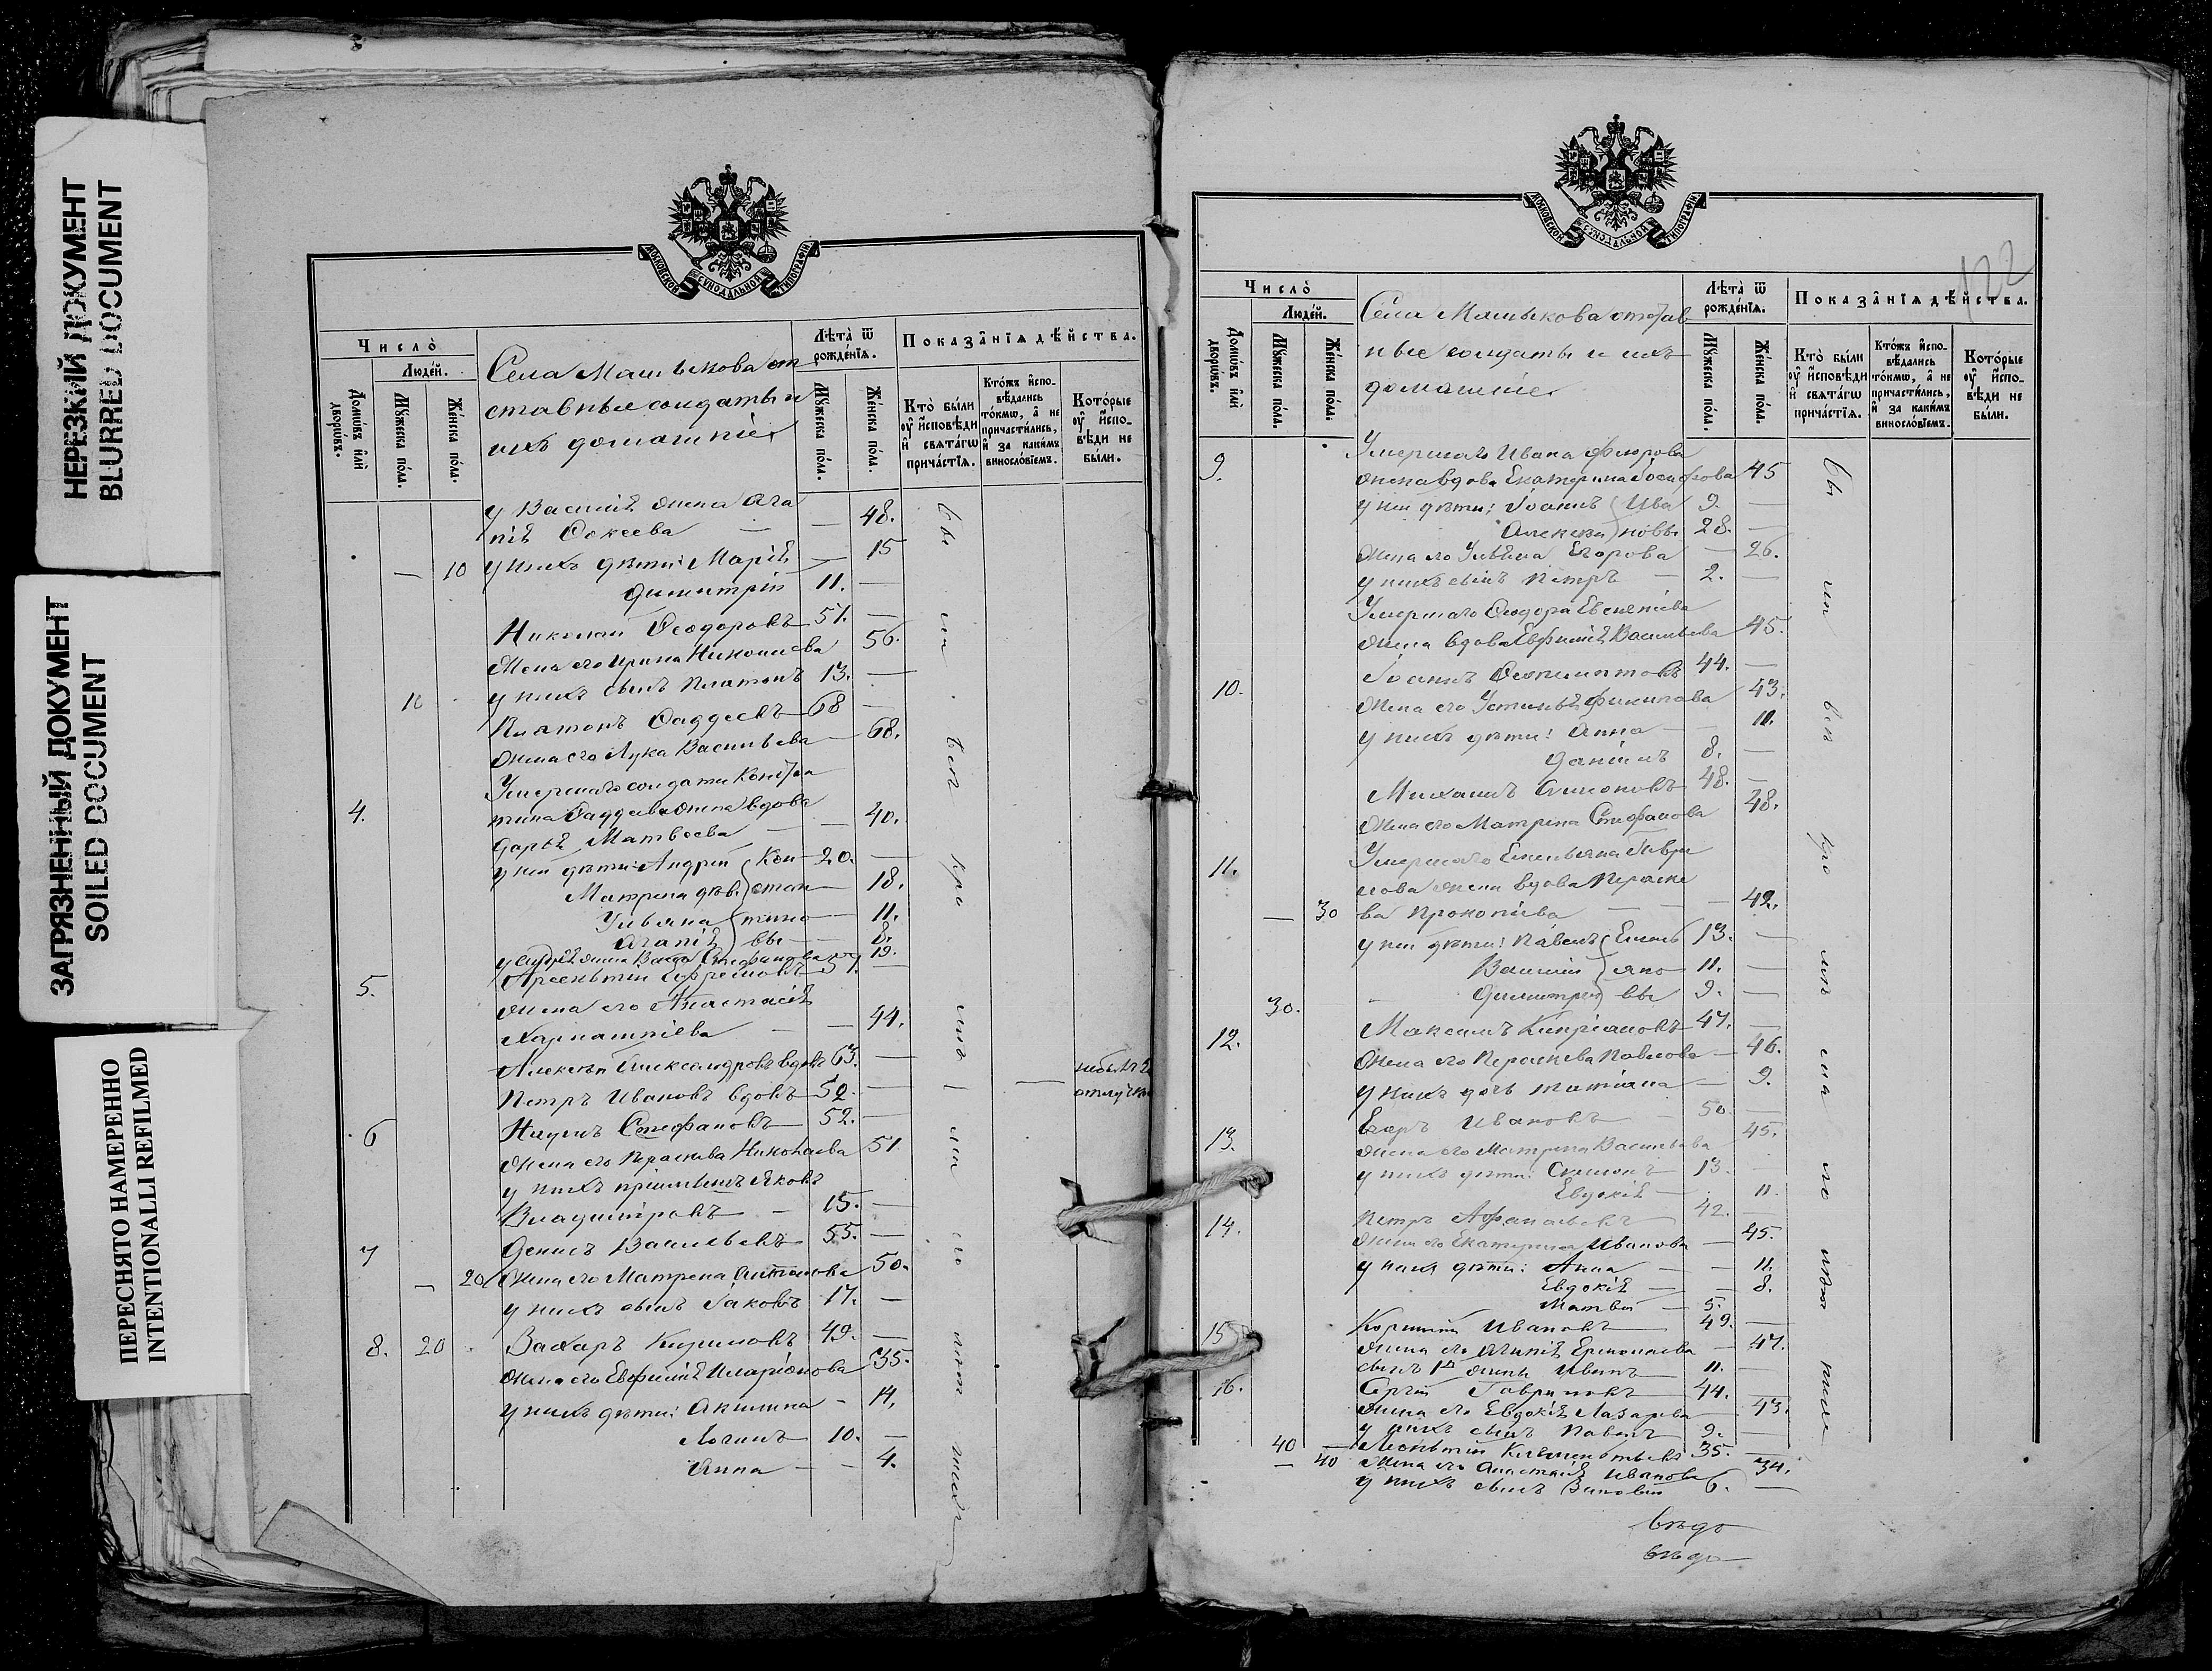 НЕРЕЗКИЙ ДОКУМЕНТ
BLURRED DOCUMENT
ЗАГРЯЗНЕННЫЙ ДОКУМЕНТ
SOILED DOCUMENT
ПЕРЕСНЯТО НАМЕРЕННО
INTENTIONALLI REFILMED
МОСКОВСКОЙ СѴНОДАЛЬНОЙ ТИПОГРАФІИ
Число̀
Люде́й.
Домѡ́въ и҆лѝ дворѡ́въ.
Мꙋ́жеска по́ла.
Же́нска по́ла.
Села Машыкова от
ставные солдаты и
ихъ домашніе
Лѣта̀ ѿ рожде́нїѧ.
Мꙋ́жеска по́ла.
Же́нска по́ла.
Показа̑нїѧ дѣ́йства.
Кто̀ бы́ли оу҆ и҆сповѣ́ди и҆ свѧта́гѡ прича́стїѧ.
Кто́жъ и҆спо-вѣ́дались то́кмѡ, а҆ не причасти́лись, и҆ за каки́мъ винослѡ́вїемъ.
Кото́рые оу҆ и҆спо-вѣ́ди не бы́ли.
у Василія жена Ага
пія Фокеева — — 48.
— 10 у нихъ дѣти: Марія — 15
Димитрій 11. —
Николай Ѳеодоровъ 51. —
Жена его Ирина Николаева 56.
10 у нихъ сынъ Платонъ 13. —
Платонъ Ѳаддеевъ 68 —
жена его Лука Васильева — 68.
Умершаго солдата Конста
4. тина Ѳаддеева жена вдова
Дарія Матвеева — — 40.
у ней дѣти: Андрей Кон 20. —
Матрена дѣв. стан 18.
Ульяна тино 11.
Агапія вы — 8.
у Андрея жена Стефанова 19.
5. Арсентій Ефремовъ 51. —
жена его Анастасія
Харлампіева — — 44.
Алексѣй Александровъ вдовъ 63. —
Петръ Ивановъ вдовъ 52. —
6 Наумъ Стефановъ 52. —
жена его Параскева Николаева 51.
у нихъ пріимышъ Яковъ
Владиміровъ — 15. —
7 Денисъ Васильевъ 55. —
— 20 Жена его Матрена Антонова 50.
у нихъ сынъ Іаковъ 17. —
8. 20 Захаръ Кириловъ 49. —
жена его Евфимія Иларіонова 35.
у нихъ дѣти: Акилина — 14.
Логинъ 10. —
Анна — — 4.
МОСКОВСКОЙ СѴНОДАЛЬНОЙ ТИПОГРАФІИ
122
Число̀
Люде́й.
Домѡ́въ и҆лѝ дворѡ́въ.
Мꙋ́жеска по́ла.
Же́нска по́ла.
Села Машыкова отстав
ные солдаты и ихъ
домашніе
Лѣта̀ ѿ рожде́нїѧ.
Мꙋ́жеска по́ла.
Же́нска по́ла.
Показа̑нїѧ дѣ́йства.
Кто̀ бы́ли оу҆ и҆сповѣ́ди и҆ свѧта́гѡ прича́стїѧ.
Кто́жъ и҆спо-вѣ́дались то́кмѡ, а҆ не причасти́лись, и҆ за каки́мъ винослѡ́вїемъ.
Кото́рые оу҆ и҆спо-вѣ́ди не бы́ли.
Умершаго Ивана Флорова
9. жена вдова Екатерина Іосифова 45
у ней дѣти: Іоаннъ Ива 9. —
Алексѣй новы 28. —
Жена его Ульяна Егорова — 26.
у нихъ сынъ Петръ — 2. —
Умершаго Ѳеодора Евсигнѣева
жена вдова Евфимія Васильева 45.
10. Іоаннъ 44. —
Жена его Устинья Филипова 43.
у нихъ дѣти: Анна — 11.
Даніилъ 8. —
Михаилъ Симоновъ 48. —
Жена его Матрена Стефанова 48.
11. Умершаго Емельяна Гаври
лова жена вдова Параске
— 30 ва Прокопіева — — — 42.
у ней дѣти: Павелъ Емель 13. —
Василій яно 11. —
Димитрей вы 9. —
30.
12. Максимъ Кипріановъ 47. —
Жена его Параскева Павлова — 46.
у нихъ дочь Татіяна — 9.
13. Егоръ Ивановъ — 50. —
жена его Матрена Васильева 45.
у нихъ дѣти: Симеонъ 13. —
Евдокія — 11.
14. Петръ Афанасьевъ 42. —
Жена его Екатерина Иванова — 45.
у нихъ дѣти: Анна — — 11.
Евдокія — — 8.
Матвѣй — 5.
15 Корнилій Ивановъ 49. —
жена его Агапія Ермолаева — 47.
сынъ 1й жены Иванъ 11. —
16. Сергій Гавриловъ 44. —
жена его Евдокія Лазарева — 43.
у нихъ сынъ Павелъ 9. —
40 — Леонтій Климентьевъ 35. —
— 40 Жена его Анастасія Иванова 34.
у нихъ сынъ Зиновій 6. —